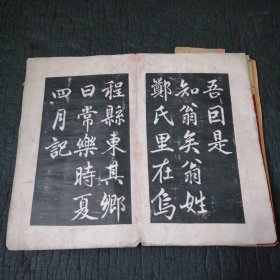 吾回是
知翁矣翁姓
鄭氏里在烏
程縣東其鄉
日常樂時夏
四月記